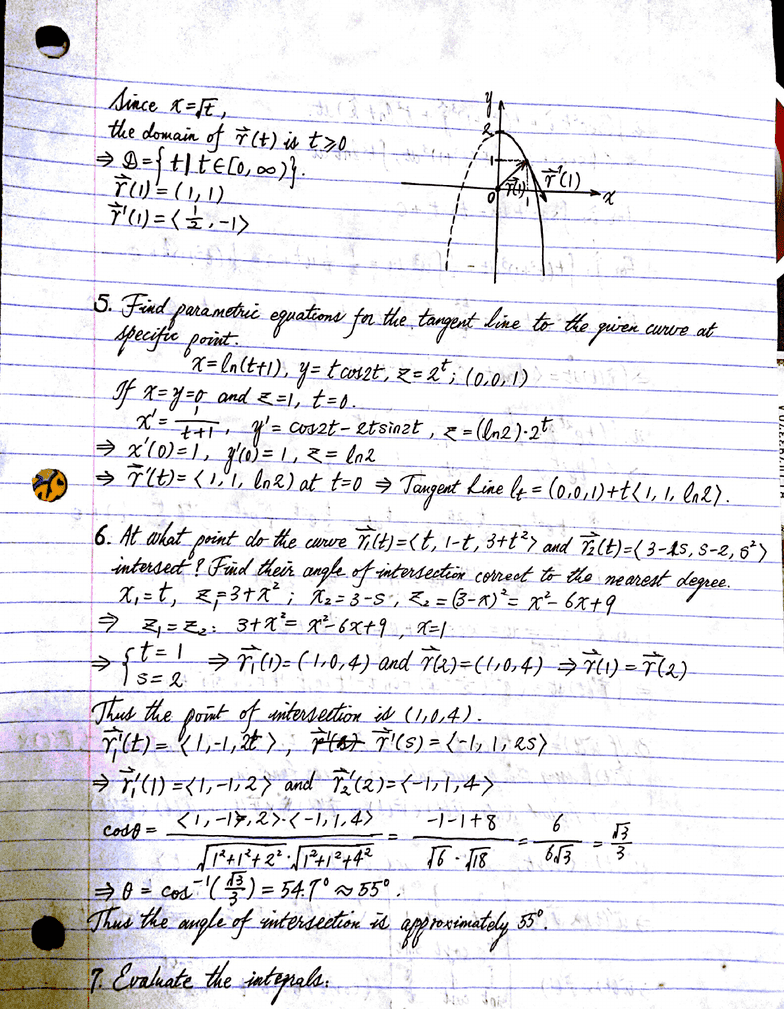 Since x=√t,
the domain of r⃗(t) is t⩾0
⇒ D={t|t∈[0,∞)}.
r⃗(1)=(1,1)
r⃗'(1)=⟨1/2,-1⟩
y
2
1
0
1
x
r⃗(1)
r⃗'(1)
5. Find parametric equations for the tangent line to the given curve at
specific point.
x=ln(t+1), y=tcos2t, z=2^t; (0,0,1)
If x=y=0 and z=1, t=0.
x'=1/(t+1), y'=cos2t-2tsin2t, z=(ln2)·2^t
⇒ x'(0)=1, y'(0)=1, z=ln2
⇒ r⃗'(t)=⟨1,1,ln2) at t=0 ⇒ Tangent Line ℓt=(0,0,1)+t⟨1,1,ln2⟩.
6. At what point do the curve r⃗₁(t)=⟨t, 1-t, 3+t²⟩ and r⃗₂(t)=⟨3-s, s-2, s²⟩
intersect? Find their angle of intersection correct to the nearest degree.
x₁=t, z₁=3+x²; x₂=3-s, z₂=(3-x)²=x²-6x+9
⇒ z₁=z₂: 3+x²=x²-6x+9, x=1
⇒ {t=1 s=2 ⇒ r⃗₁(1)=(1,0,4) and r⃗(2)=(1,0,4) ⇒ r⃗(1)=r⃗(2)
Thus the point of intersection is (1,0,4).
r⃗₁'(t)=⟨1,-1,2t⟩, r⃗'(s)=⟨-1,1,2s⟩
⇒ r⃗₁'(1)=⟨1,-1,2⟩ and r⃗₂'(2)=⟨-1,1,4⟩
cosθ= ⟨1,-1,2⟩·⟨-1,1,4⟩/(√(1²+1²+2²)·√(1²+1²+4²)) = (-1-1+8)/(√6·√18) = 6/(6√3) = √3/3
⇒ θ=cos⁻¹(√3/3)=54.7°≈55°.
Thus the angle of intersection is approximately 55°.
7. Evaluate the integrals: